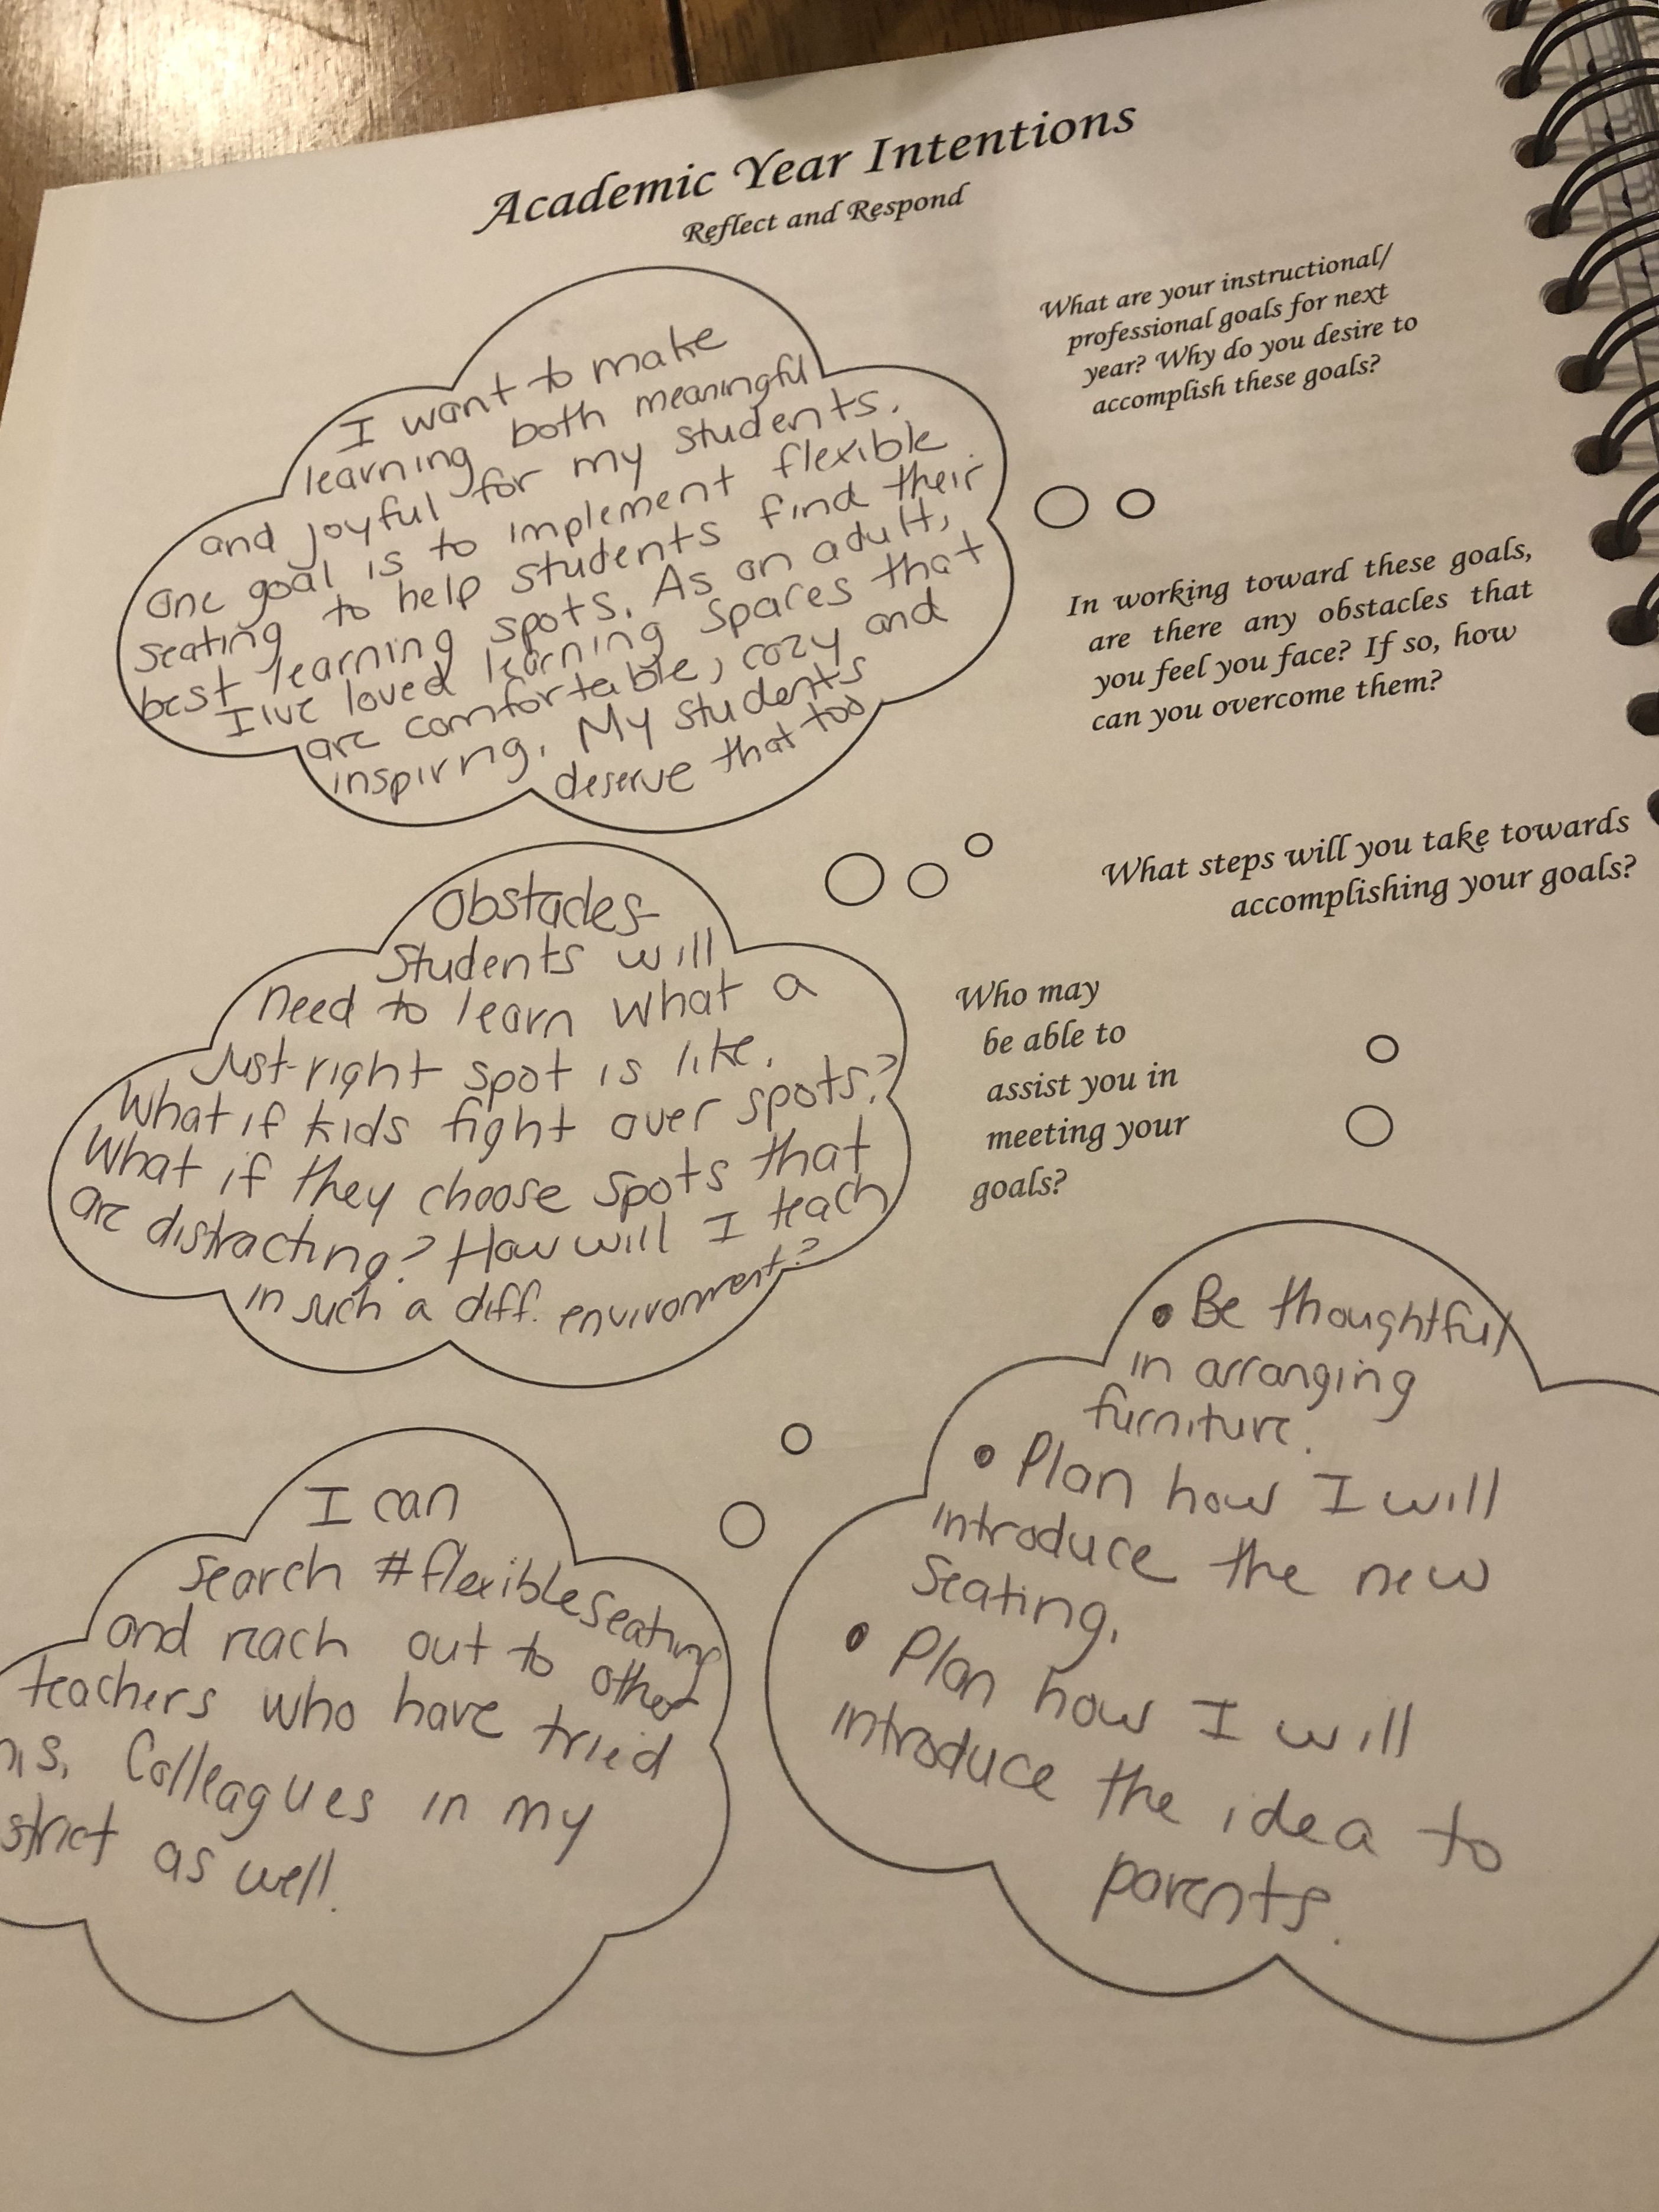 Academic Year Intentions
Reflect and Respond
What are your instructional/
professional goals for next
year? Why do you desire to
accomplish these goals?
I want to make
learning both meaningful
and joyful for my students.
One goal is to implement flexible
seating to help students find their
best learning spots. As an adult,
I'lve loved learning spaces that
are comfortable, cozy and
inspiring. My students
deserve that too
In working toward these goals,
are there any obstacles that
you feel you face? If so, how
can you overcome them?
Obstacles-
Students will
need to learn what a
just-right spot is like.
What if kids fight over spots?
What if they choose spots that
are distracting? How will I teach
in such a diff. environment?
What steps will you take towards
accomplishing your goals?
• Be thoughtful
in arranging
furniture.
• Plan how I will
introduce the new
seating.
• Plan how I will
introduce the idea to
parents.
Who may
be able to
assist you in
meeting your
goals?
I can
search #flexibleseating
and reach out to other
teachers who have tried
is. Colleagues in my
strict as well.